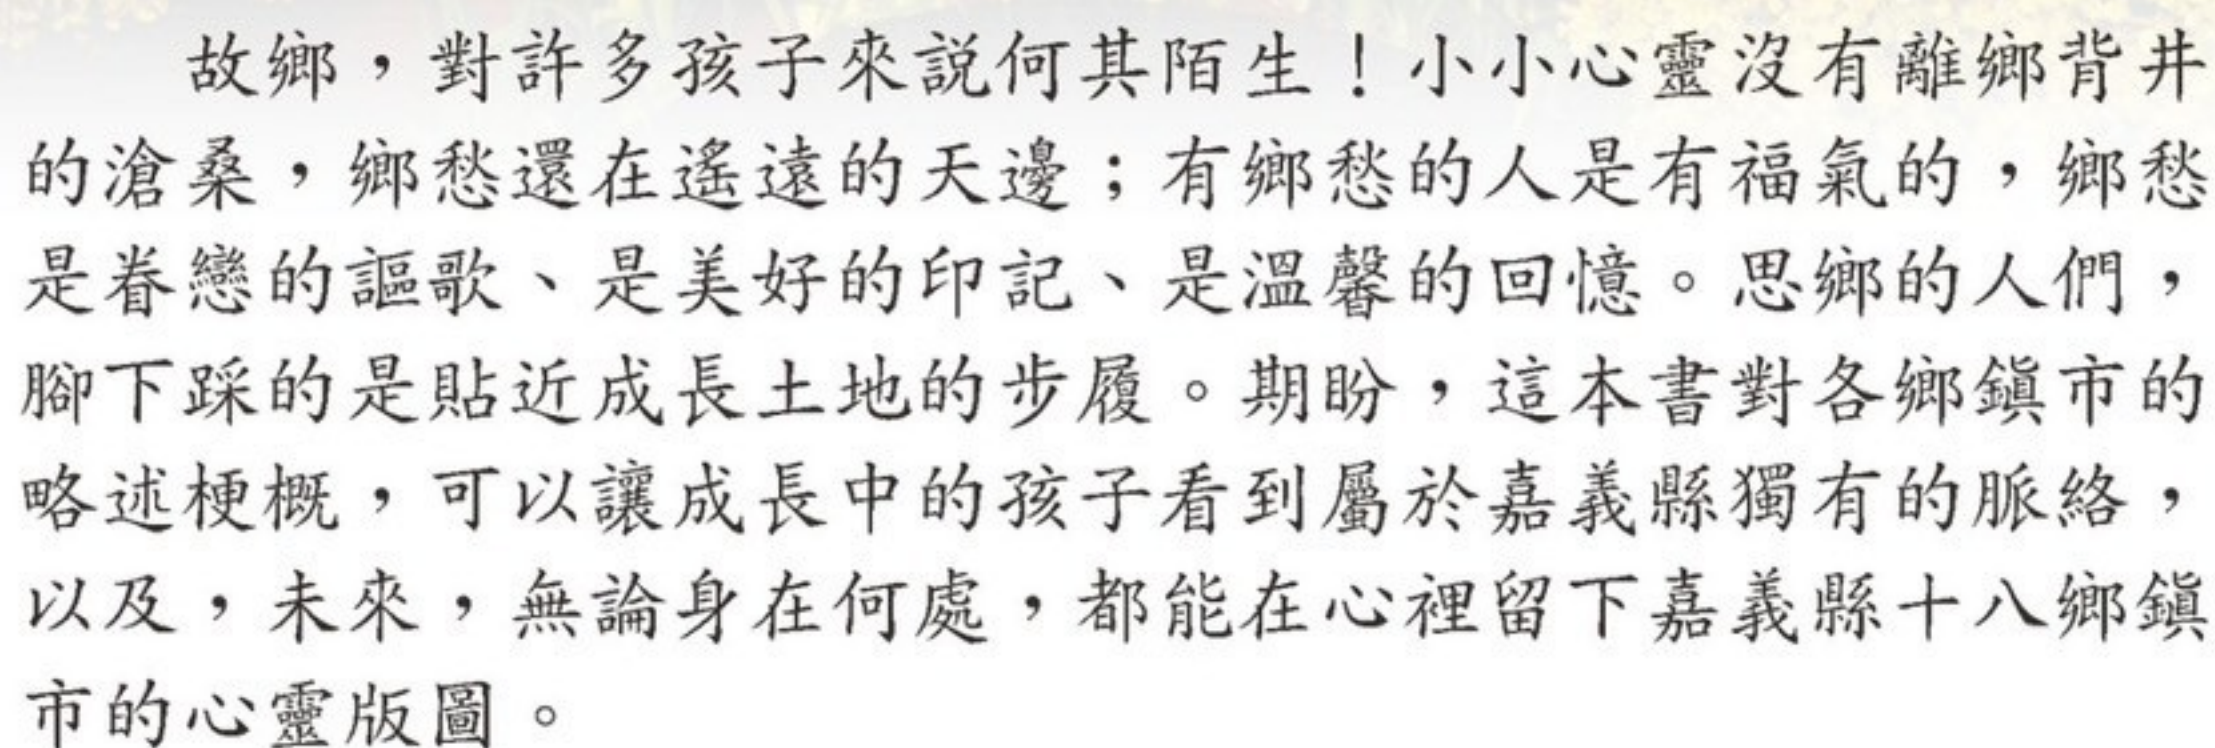 故鄉，對許多孩子來說何其陌生！小小心靈沒有離鄉背井
的滄桑，鄉愁還在遙遠的天邊；有鄉愁的人是有福氣的，鄉愁
是眷戀的謳歌、是美好的印記、是溫馨的回憶。思鄉的人們，
腳下踩的是貼近成長土地的步履。期盼，這本書對各鄉鎮市的
略述梗概，可以讓成長中的孩子看到屬於嘉義縣獨有的脈絡，
以及，未來，無論身在何處，都能在心裡留下嘉義縣十八鄉鎮
市的心靈版圖。